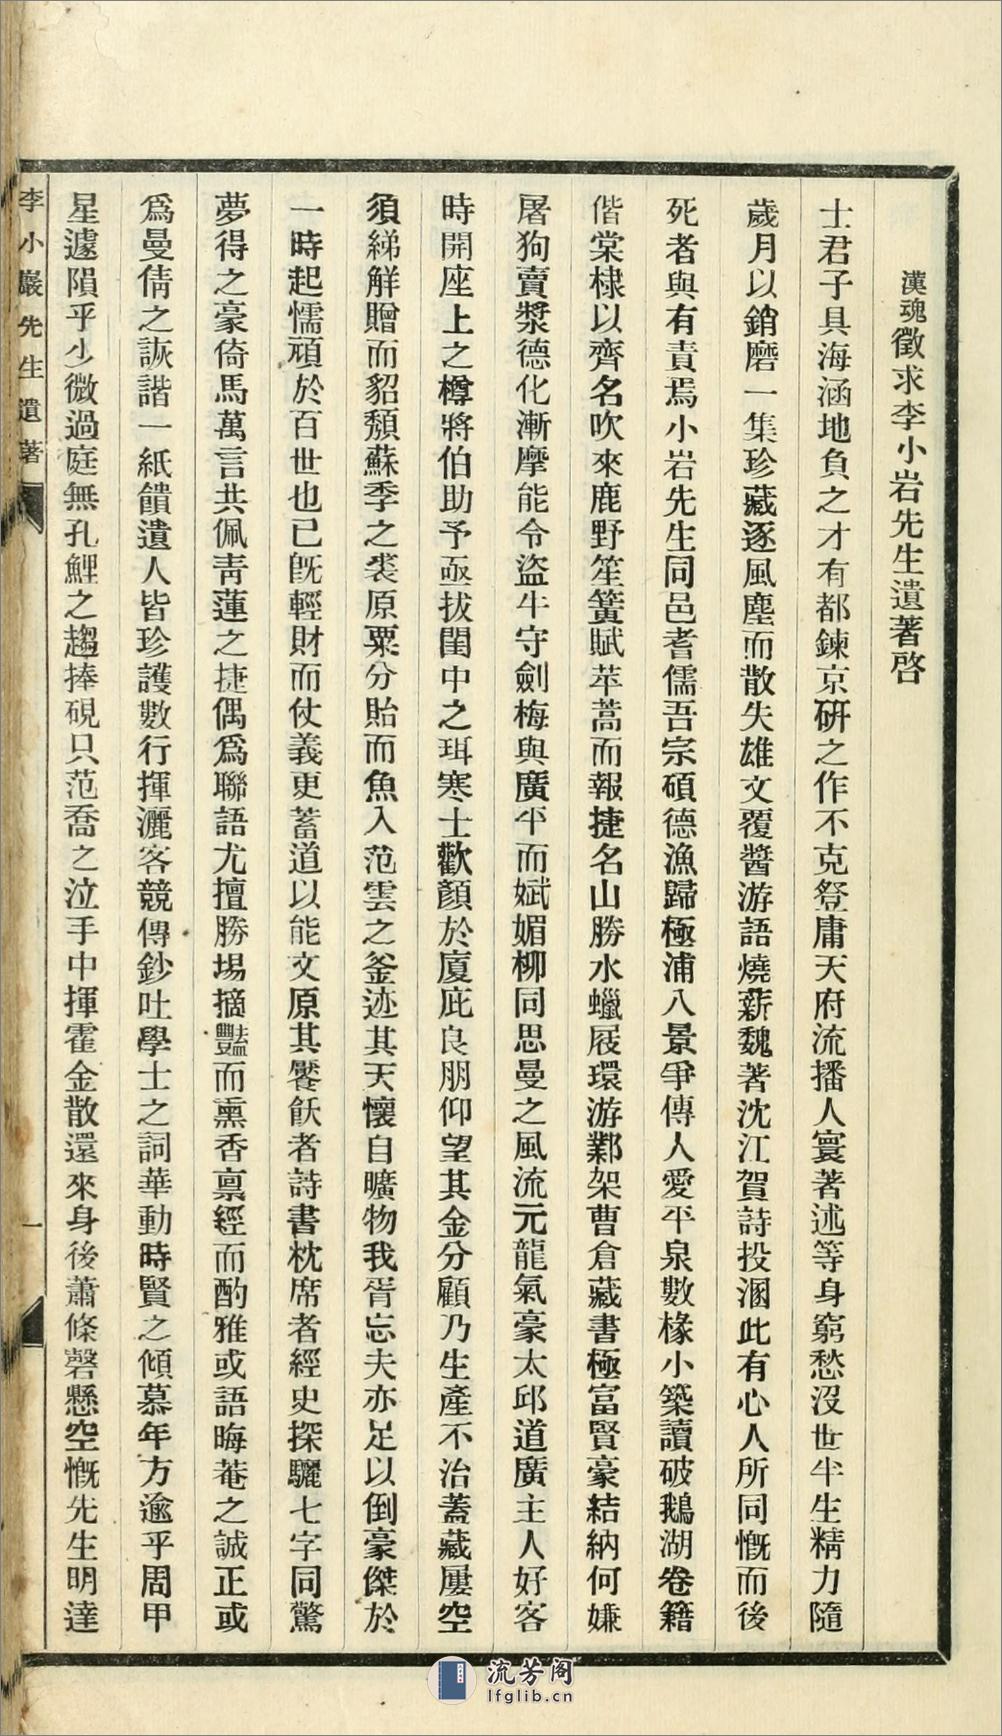 漢魂徵求李小岩先生遺著啓
士君子具海涵地負之才有都鍊京硏之作不克登庸天府流播人寰著述等身窮愁沒世半生精力隨
歲月以銷磨一集珍藏逐風塵而散失雄文覆醬游語燒薪魏著沈江賀詩投溷此有心人所同慨而後
死者與有責焉小岩先生同邑耆儒吾宗碩德漁歸極浦八景爭傳人愛平泉數椽小築讀破鵝湖卷籍
偕棠棣以齊名吹來鹿野笙簧賦苹蒿而報捷名山勝水蠟屐環游鄴架曹倉藏書極富賢豪結納何嫌
屠狗賣漿德化漸摩能令盜牛守劍梅與廣平而娬媚柳同思曼之風流元龍氣豪太邱道廣主人好客
時開座上之樽將伯助予亟拔閨中之珥寒士歡顏於廈庇良朋仰望其金分顧乃生產不治蓋藏屢空
須綈解贈而貂頹蘇季之裘原粟分貽而魚入范雲之釜迹其天懷自曠物我胥忘夫亦足以倒豪傑於
一時起懦頑於百世也已旣輕財而仗義更蓄道以能文原其饜飫者詩書枕席者經史探驪七字同驚
夢得之豪倚馬萬言共佩靑蓮之捷偶爲聯語尤擅勝場摘豔而熏香禀經而酌雅或語晦菴之誠正或
爲曼倩之詼諧一紙饋遺人皆珍護數行揮灑客競傳鈔吐學士之詞華動時賢之傾慕年方逾乎周甲
星遽隕乎少微過庭無孔鯉之趨捧硯只范喬之泣手中揮霍金散還來身後蕭條磬懸空慨先生明達
李小巖先生遺著
一
流芳阁
lfglib.cn